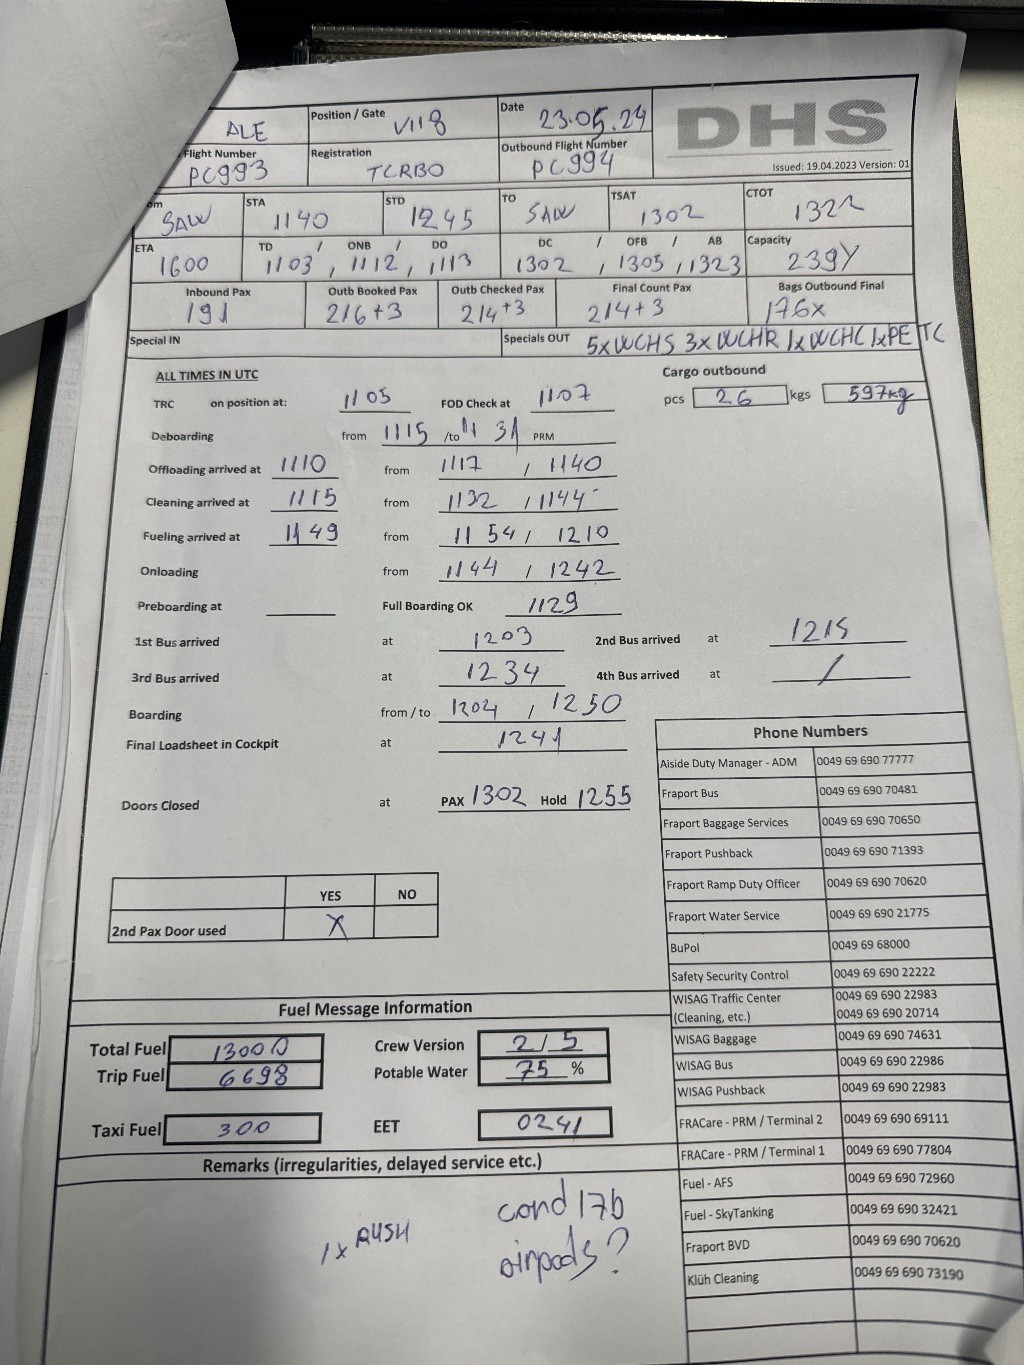 ALE Position / Gate V118 Date 23.05.24 DHS
Flight Number PC993 Registration TCRBO Outbound Flight Number PC994 Issued: 19.04.2023 Version: 01
om SAW STA 1140 STD 1245 TO SAW TSAT 1302 CTOT 1322
ETA 1600 TD / ONB / DO 1103 , 1112 , 1113 DC / OFB / AB 1302 , 1305 , 1323 Capacity 239Y
Inbound Pax 191 Outb Booked Pax 216+3 Outb Checked Pax 214+3 Final Count Pax 214+3 Bags Outbound Final 176x
Special IN Specials OUT 5xWCHS 3xWCHR 1xWCHC 1xPETC
ALL TIMES IN UTC Cargo outbound
TRC on position at: 1105 FOD Check at 1107 pcs 26 kgs 597kg
Deboarding from 1115 /to 1131 PRM
Offloading arrived at 1110 from 1117 , 1140
Cleaning arrived at 1115 from 1132 / 1144
Fueling arrived at 1149 from 1154 / 1210
Onloading from 1144 / 1242
Preboarding at Full Boarding OK 1129
1st Bus arrived at 1203 2nd Bus arrived at 1215
3rd Bus arrived at 1234 4th Bus arrived at /
Boarding from / to 1204 , 1250
Final Loadsheet in Cockpit at 1241
Doors Closed at PAX 1302 Hold 1255
YES NO
2nd Pax Door used X
Phone Numbers
Aiside Duty Manager - ADM 0049 69 690 77777
Fraport Bus 0049 69 690 70481
Fraport Baggage Services 0049 69 690 70650
Fraport Pushback 0049 69 690 71393
Fraport Ramp Duty Officer 0049 69 690 70620
Fraport Water Service 0049 69 690 21775
BuPol 0049 69 68000
Safety Security Control 0049 69 690 22222
WISAG Traffic Center 0049 69 690 22983
(Cleaning, etc.) 0049 69 690 20714
WISAG Baggage 0049 69 690 74631
WISAG Bus 0049 69 690 22986
WISAG Pushback 0049 69 690 22983
FRACare - PRM / Terminal 2 0049 69 690 69111
FRACare - PRM / Terminal 1 0049 69 690 77804
Fuel - AFS 0049 69 690 72960
Fuel - SkyTanking 0049 69 690 32421
Fraport BVD 0049 69 690 70620
Klüh Cleaning 0049 69 690 73190
Fuel Message Information
Total Fuel 13000 Crew Version 2/5
Trip Fuel 6698 Potable Water 75 %
Taxi Fuel 300 EET 0241
Remarks (irregularities, delayed service etc.)
1x RUSH cond 17b
airpods?